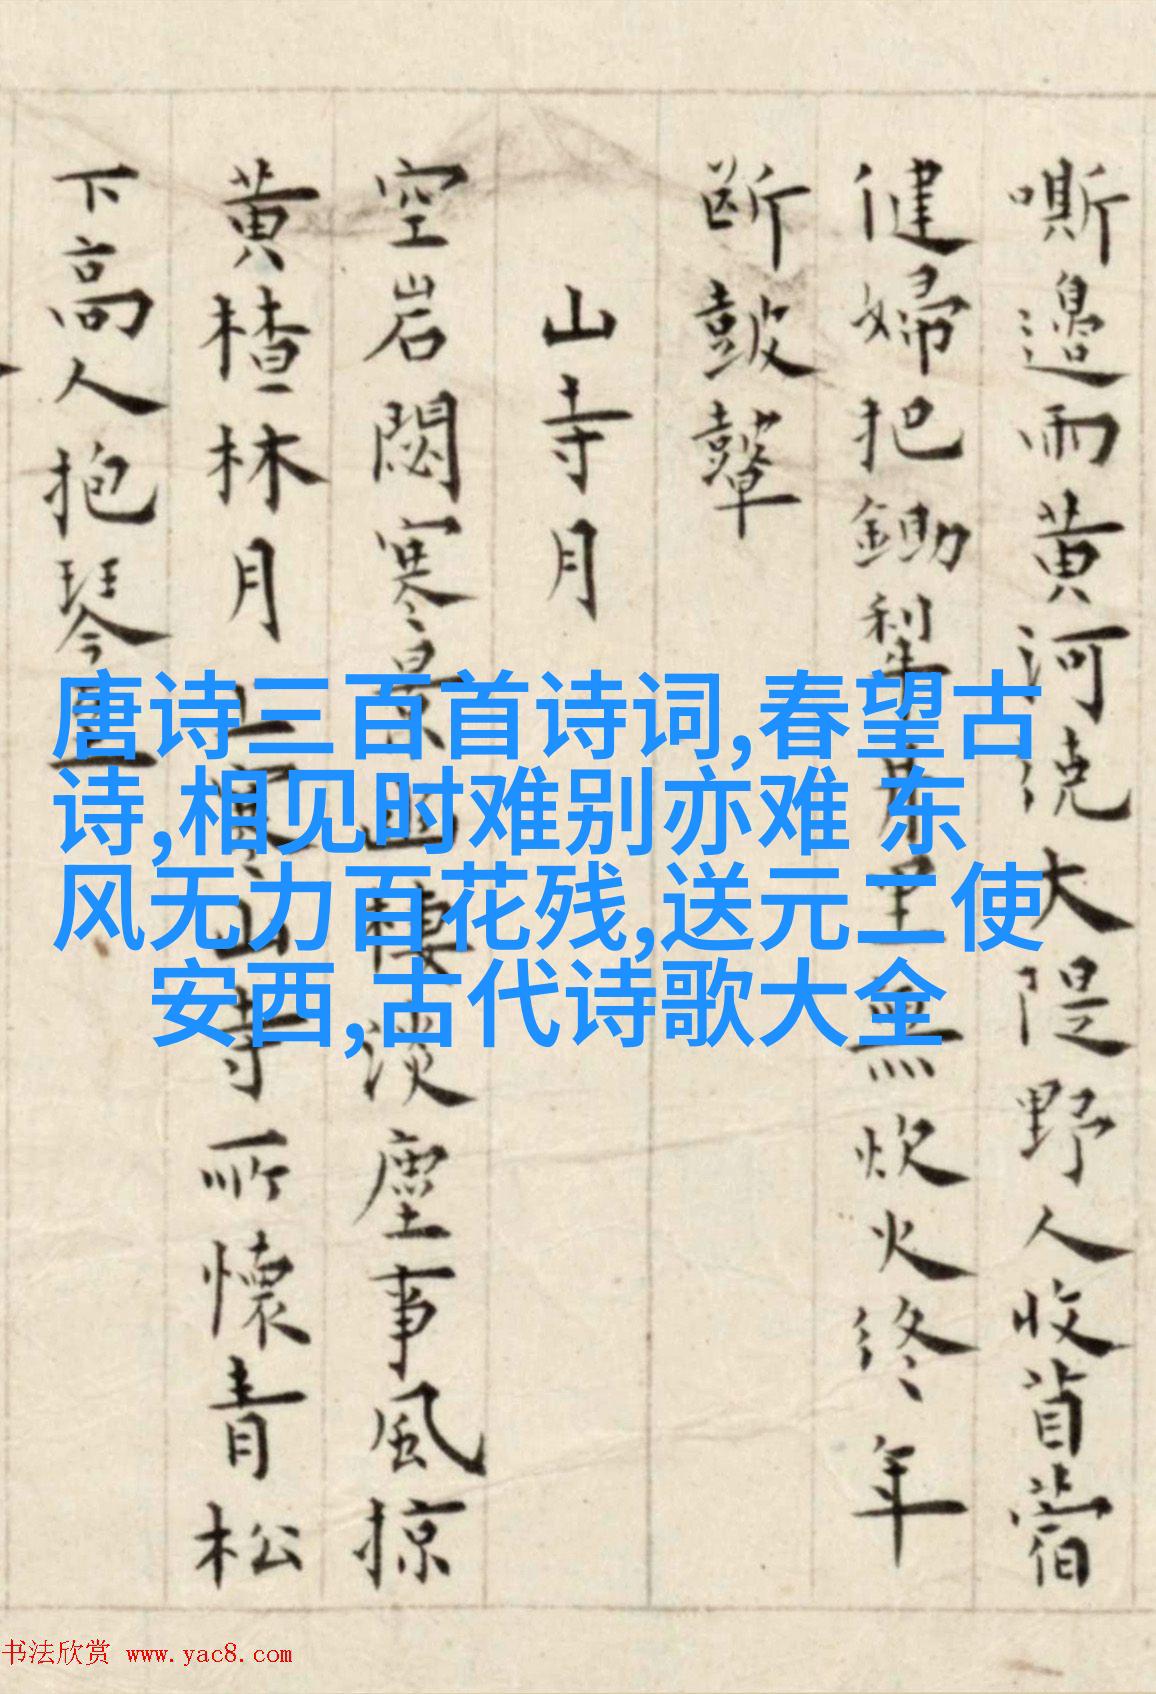 嘶邊雨黃河繞大隄野人收苜蓿
健婦把鋤犁里無炊火終年
斷皷鼙
山寺月
空岩閟寒景山棲淡塵事風掠
黃楂林月上寒山寺所懷青松
下高人抱琴至
唐诗三百首诗词,春望古
诗,相见时难别亦难 东
风无力百花残,送元二使
安西,古代诗歌大全
书法欣赏 www.yac8.com